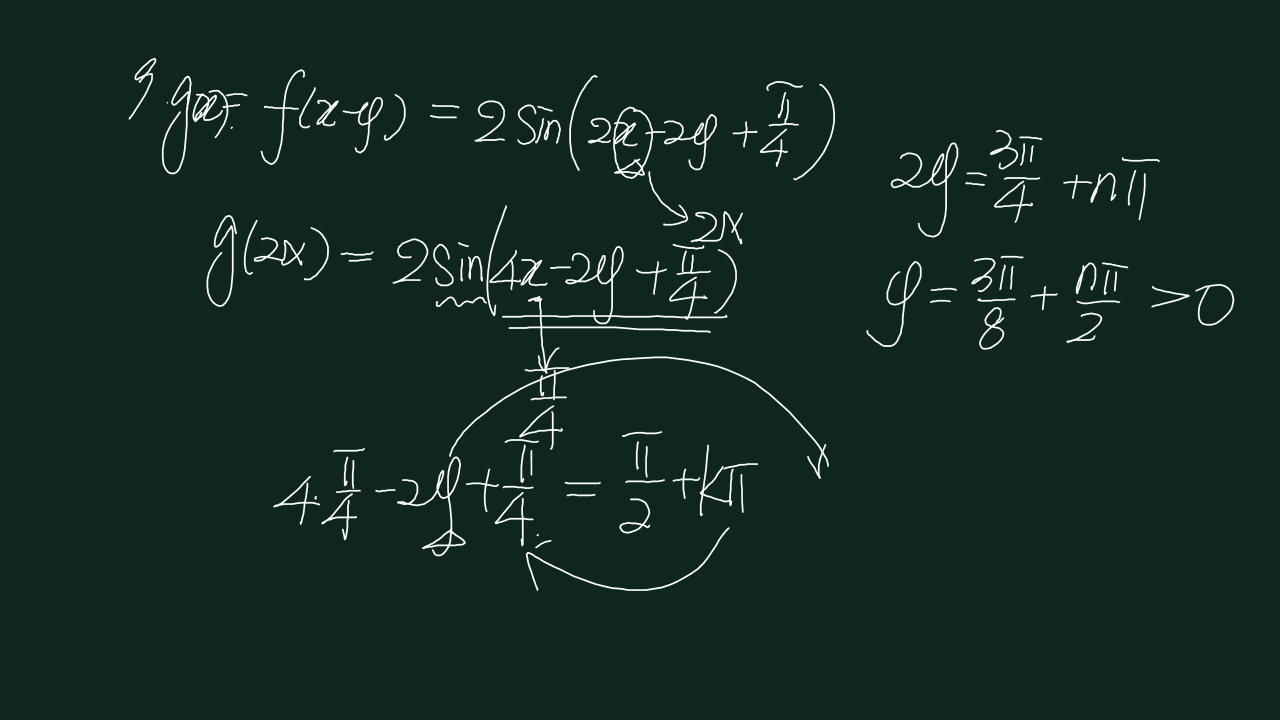 g(x) = f(x-φ) = 2sin(2x-2φ+π/4)
2x
g(2x) = 2sin(4x-2φ+π/4)
π/4
4·π/4-2φ+π/4 = π/2+kπ
2φ=3π/4+nπ
φ=3π/8+nπ/2>0